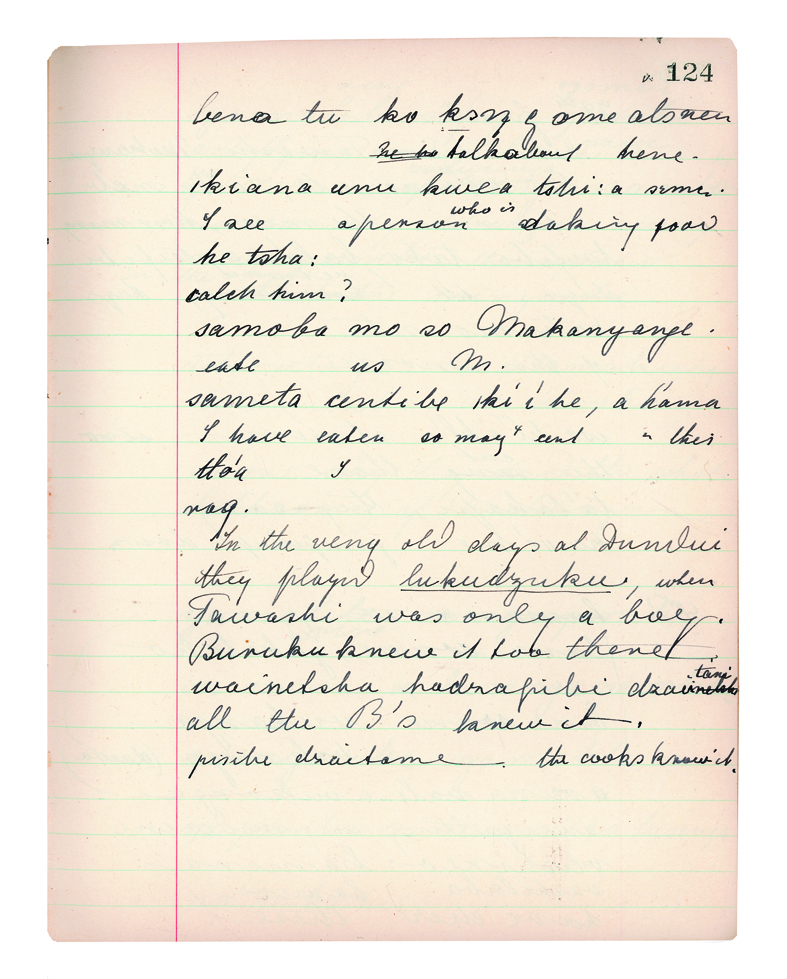 124
bena tu ko kszę ome
~~he ho~~ talkabout here.
ikiana unu kwea tshi:a seme.
I see a person who is taking food
he tsha:
catch him?
samoba mo so Makanyange.
eate us M.
sameta centibe iki i he, a hama
I have eaten so may " ent " this
tłóa I
rag.
In the very old days at Dundui
they playd lukudzuku, when
Tawashi was only a boy.
Buruku knew it too there
tani
wainetsha hadzapibi dza
all the B's knew it.
pisibe dzaitame. the cooks know it.